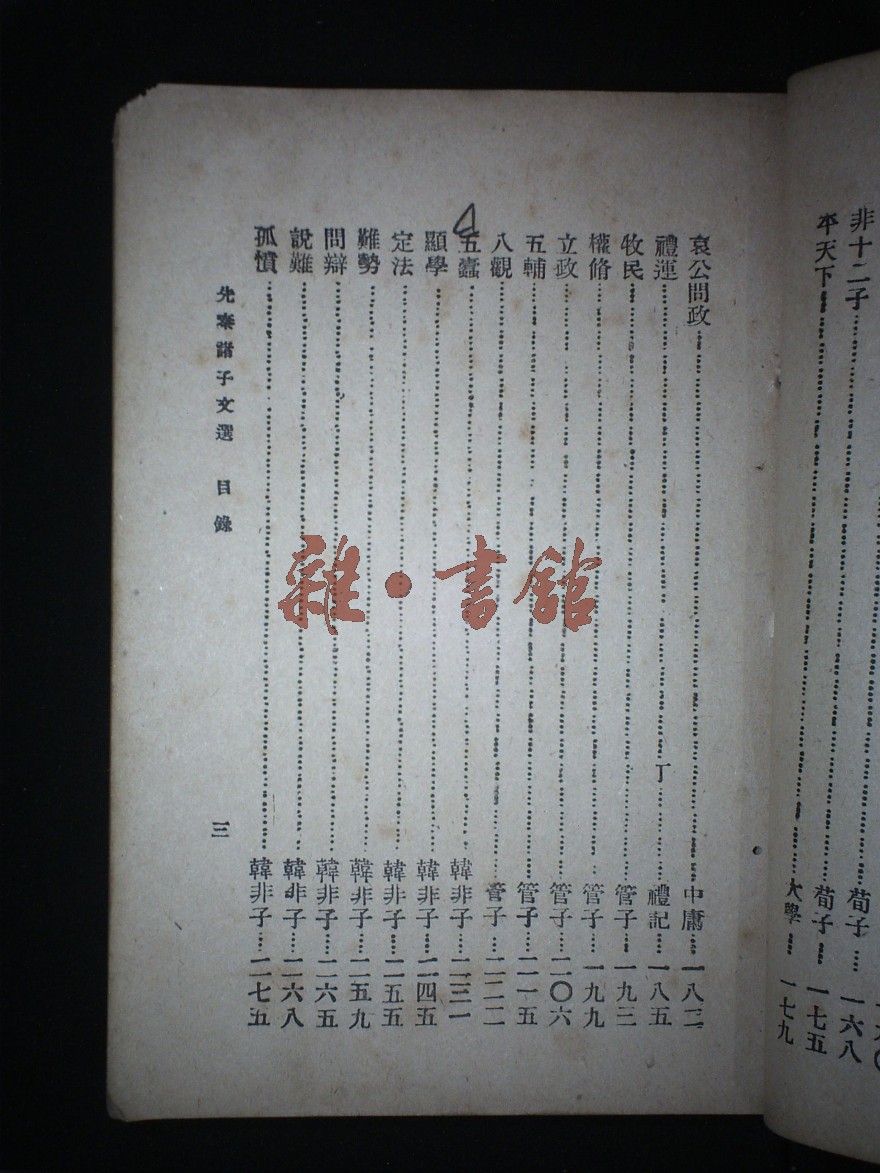 荀子 一六八
非十二子 荀子 一七五
平天下 大學 一七九
哀公問政 中庸 一八二
禮運 禮記 一八五
牧民 管子 一九三
權脩 管子 一九九
立政 管子 二〇六
五輔 管子 二一五
八觀 管子 二二二
五蠹 韓非子 二三一
顯學 韓非子 二四五
定法 韓非子 二五五
難勢 韓非子 二五九
問辯 韓非子 二六五
說難 韓非子 二六八
孤憤 韓非子 二七五
先秦諸子文選 目錄 三
雜·書館